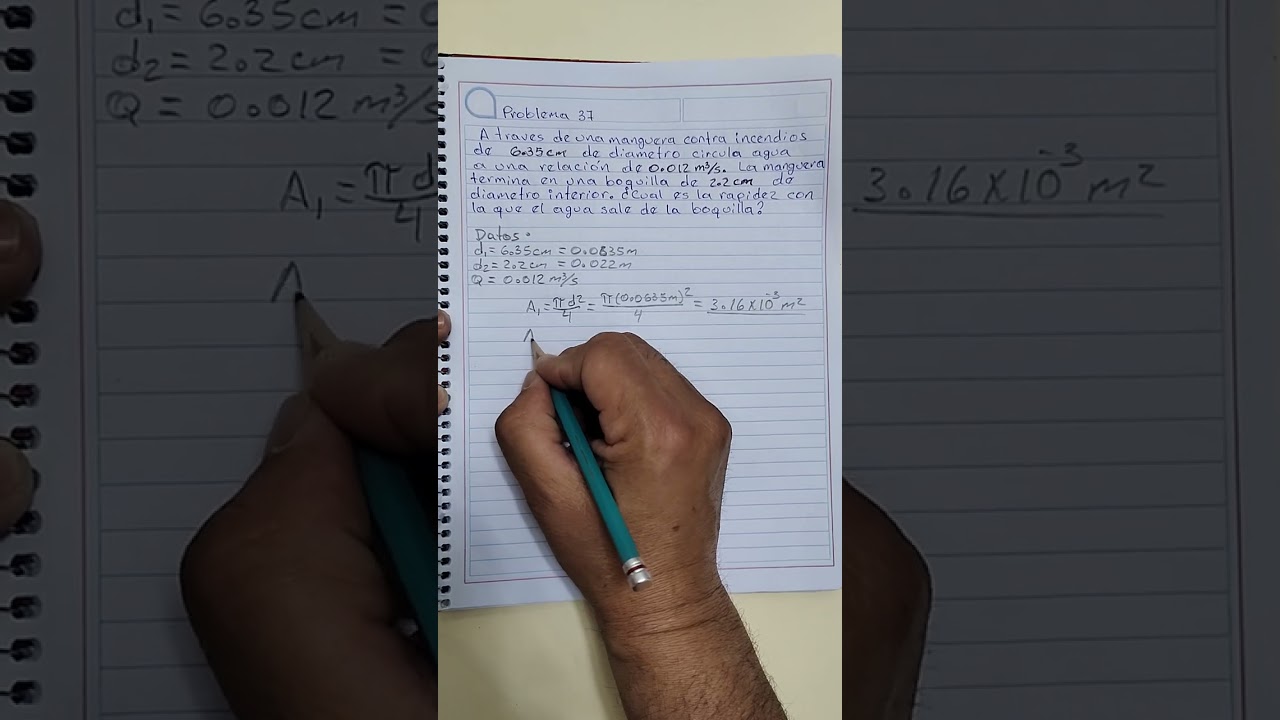 Problema 37
A traves de una manguera contra incendios
de 6.35cm de diametro circula agua
a una relación de 0.012 m³/s. La manguera
termina en una boquilla de 2.2cm de
diametro interior. ¿Cual es la rapidez con
la que el agua sale de la boquilla?
Datos:
d₁= 6.35cm = 0.0635m
d₂= 2.2cm = 0.022m
Q = 0.012 m³/s
A₁ = πd²/4 = π(0.0635m)²/4 = 3.16x10⁻³m²
A
d₁= 6.35cm =
d₂= 2.2cm =
Q = 0.012 m³/s
A₁ = πd/4
A
3.16x10⁻³m²